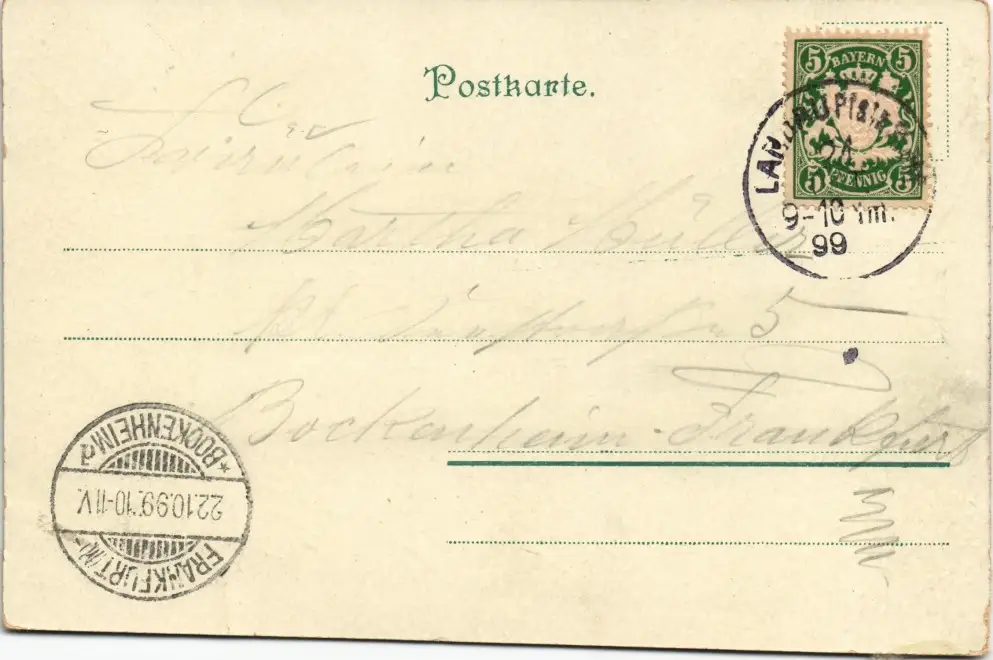 Postkarte.
5 BAYERN 5
5 PFENNIG 5
9-10 Vm.
99
Fräulein
Martha Müller
5
Bockenheim-Frankfurt
*BOCKENHEIM
22.10.99. 10-11 V.
FRANKFURT (M)-